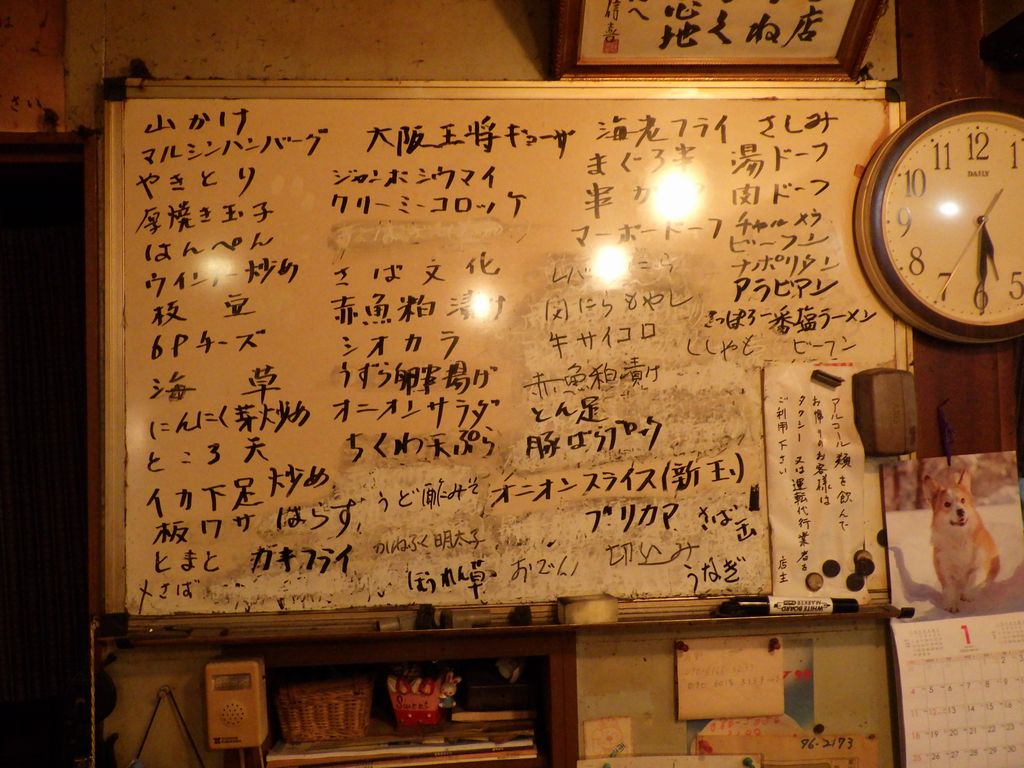 店
ねく
地
へ
さい
山かけ
マルシンハンバーグ
やきとり
厚焼き玉子
はんぺん
ウインナー炒め
板
6Pチーズ
海草
にんにく芽炒め
ところ天
イカ下足炒め
板ワサ
とまと
〆さば
大阪王将ギョーザ
ジャンボシウマイ
クリーミーコロッケ
さば文化
赤魚粕漬け
シオカラ
うずら卵串揚げ
オニオンサラダ
ちくわ天ぷら
うど酢みそ
はらす
かねふく明太子
カキフライ
ほうれん草
おでん
海老フライ
まぐろ
串カツ
マーボードーフ
肉にらもやし
牛サイコロ
赤魚粕漬け
とん足
豚ばらブロック
オニオンスライス(新玉)
ブリカマ
さば缶
切込み
うなぎ
さしみ
湯ドーフ
肉ドーフ
チャルメラ
ビーフン
ナポリタン
アラビアン
さっぽろ一番塩ラーメン
ししゃも
ビーフン
アルコール類を飲んで
お帰りのお客様は
タクシー又は運転代行業者を
ご利用下さい
店主
WHITE BOARD
MARKER
DAILY
12
11
10
9
8
7
6
5
1
Sweet
96-2193